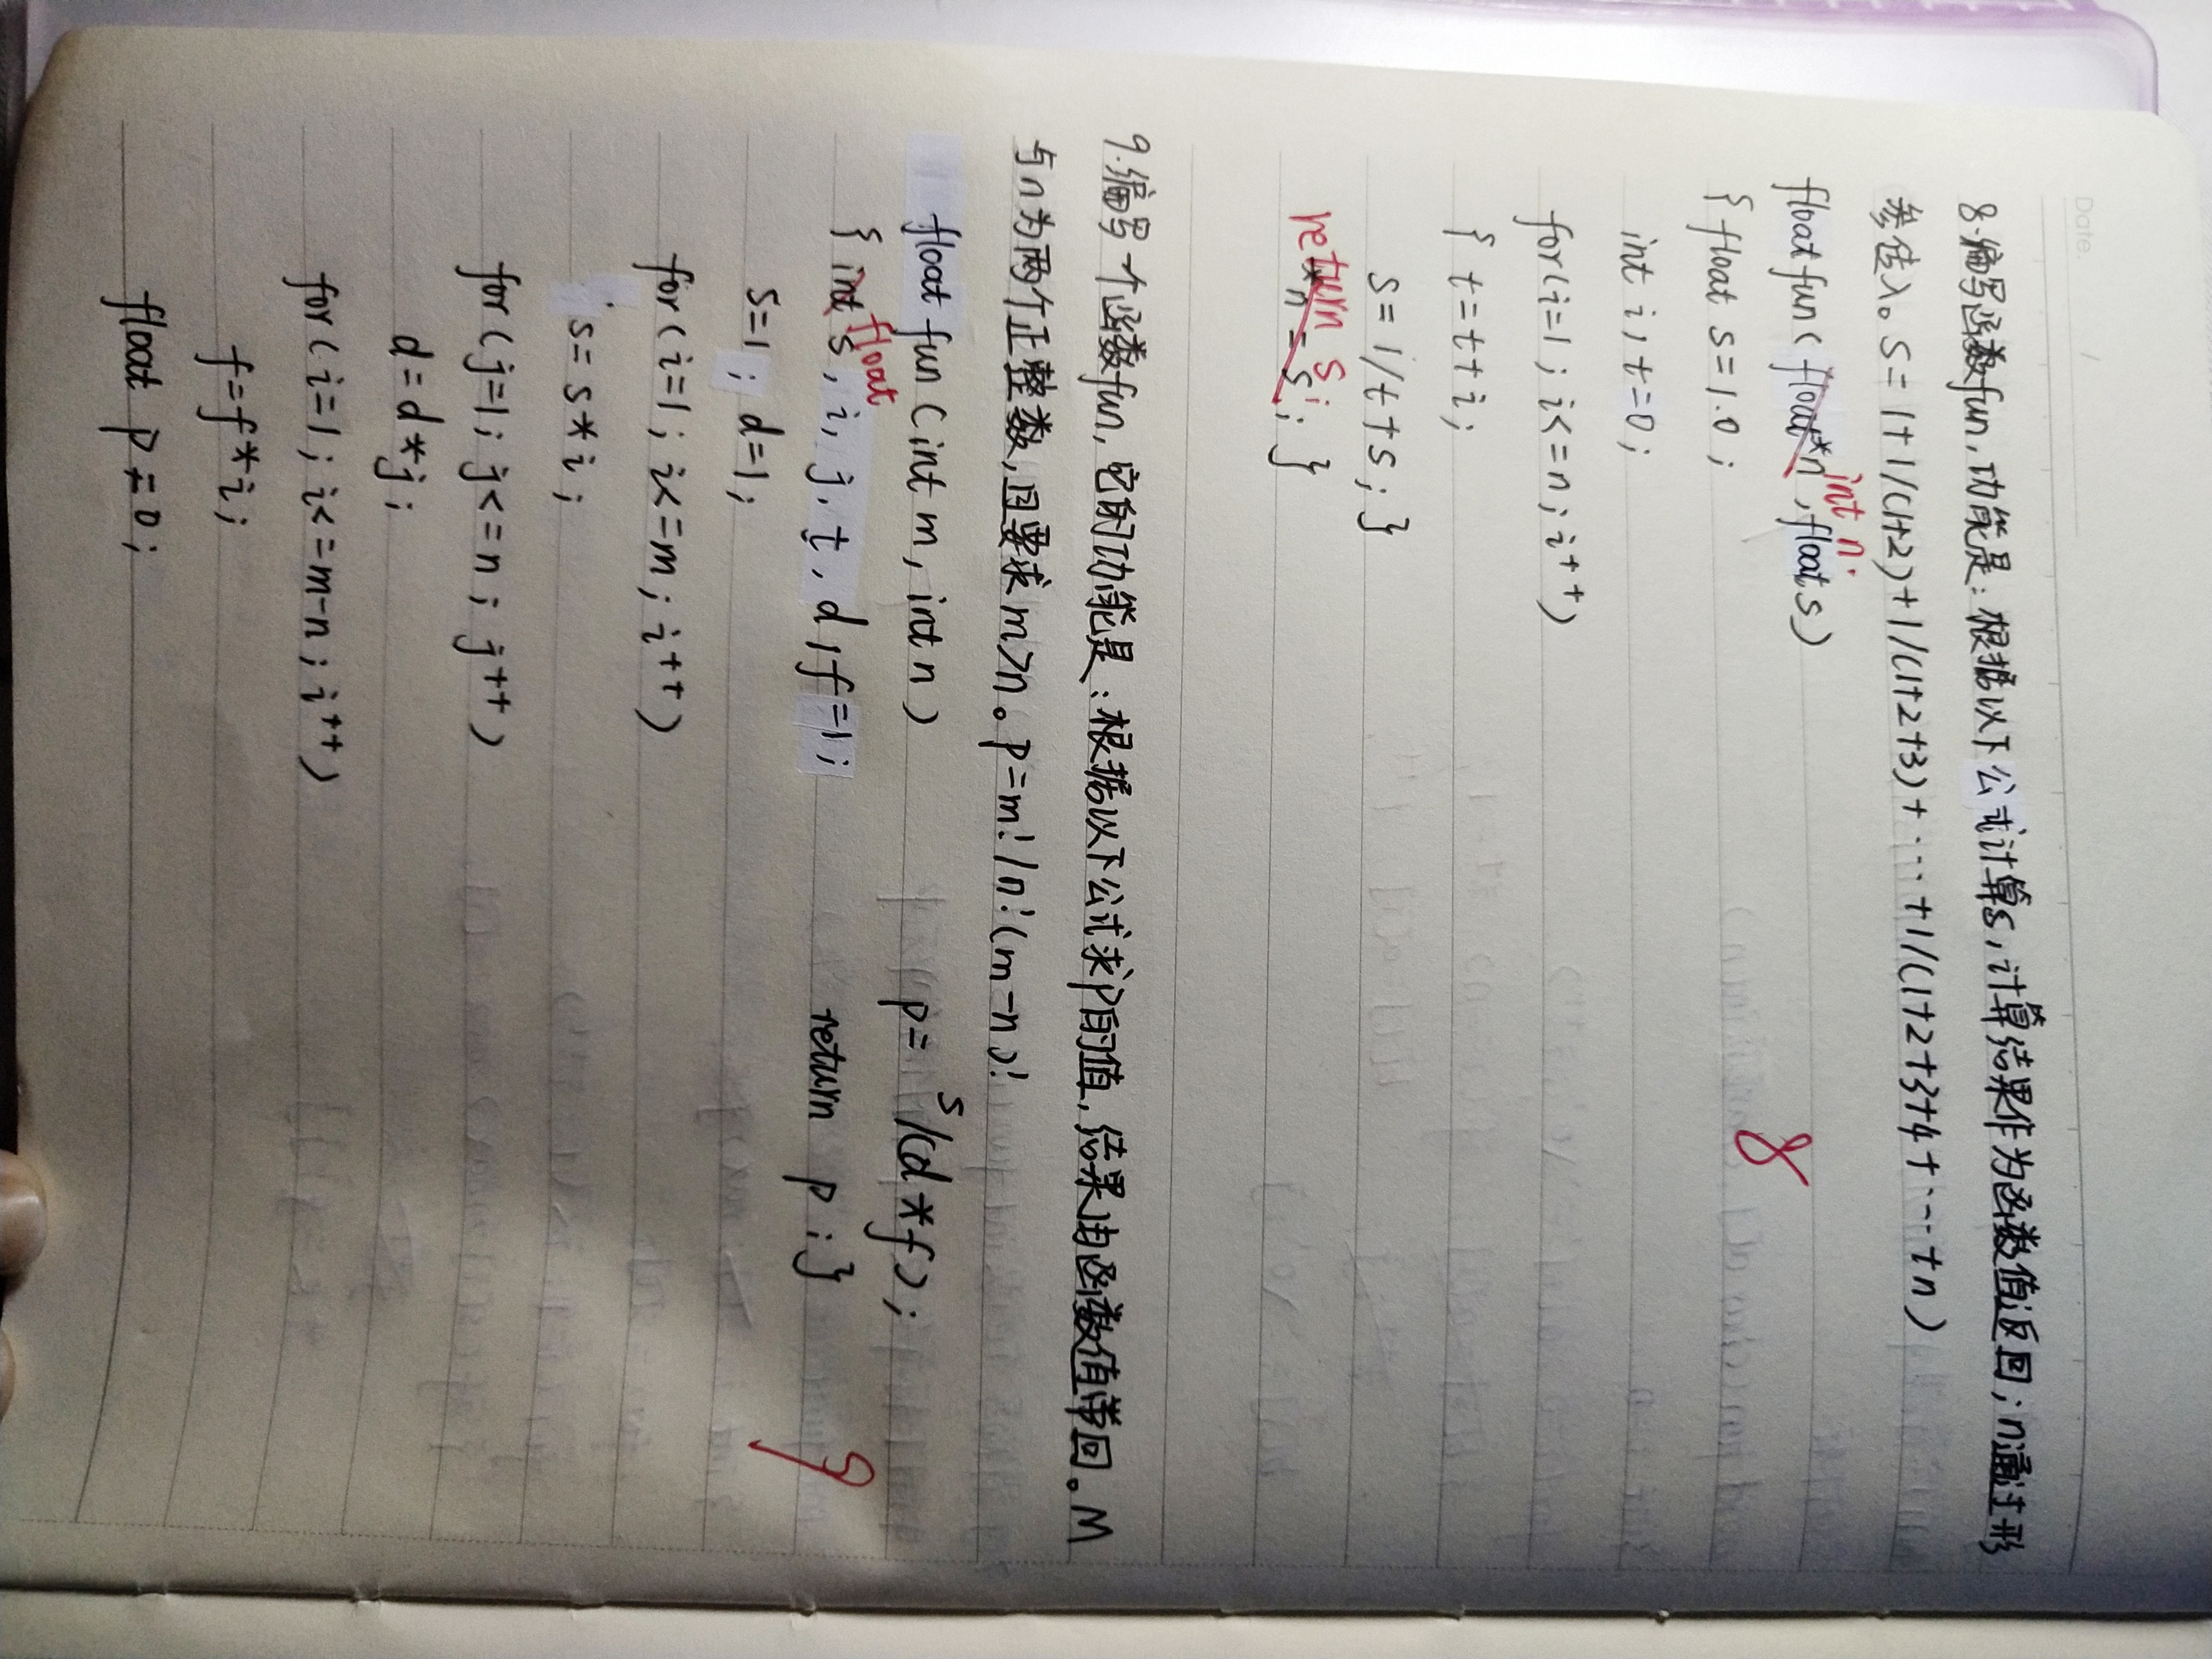 Date. /
8.编写函数fun,功能是:根据以下公式计算s,计算结果作为函数值返回;n通过形
参传入。S=1+1/(1+2)+1/(1+2+3)+…+1/(1+2+3+4+…+n)
int n.
float fun(float*n,float s)
{float s=1.0;
8
int i,t=0;
for(i=1;i<=n;i++)
{t=t+i;
s=1/t+s;}
return s;
*n=s;}
9.编写一个函数fun,它的功能是:根据以下公式求p的值,结果由函数值带回。M
与n为两个正整数,且要求m>n。p=m!/n!(m-n)!
float fun(int m,int n)
float
{int s,i,j,t,d,f=1;
s=1;d=1;
for(i=1;i<=m;i++)
s=s*i;
for(j=1;j<=n;j++)
d=d*j;
for(i=1;i<=m-n;i++)
f=f*i;
float p=0;
p=s/(d*f);
return p;}
9